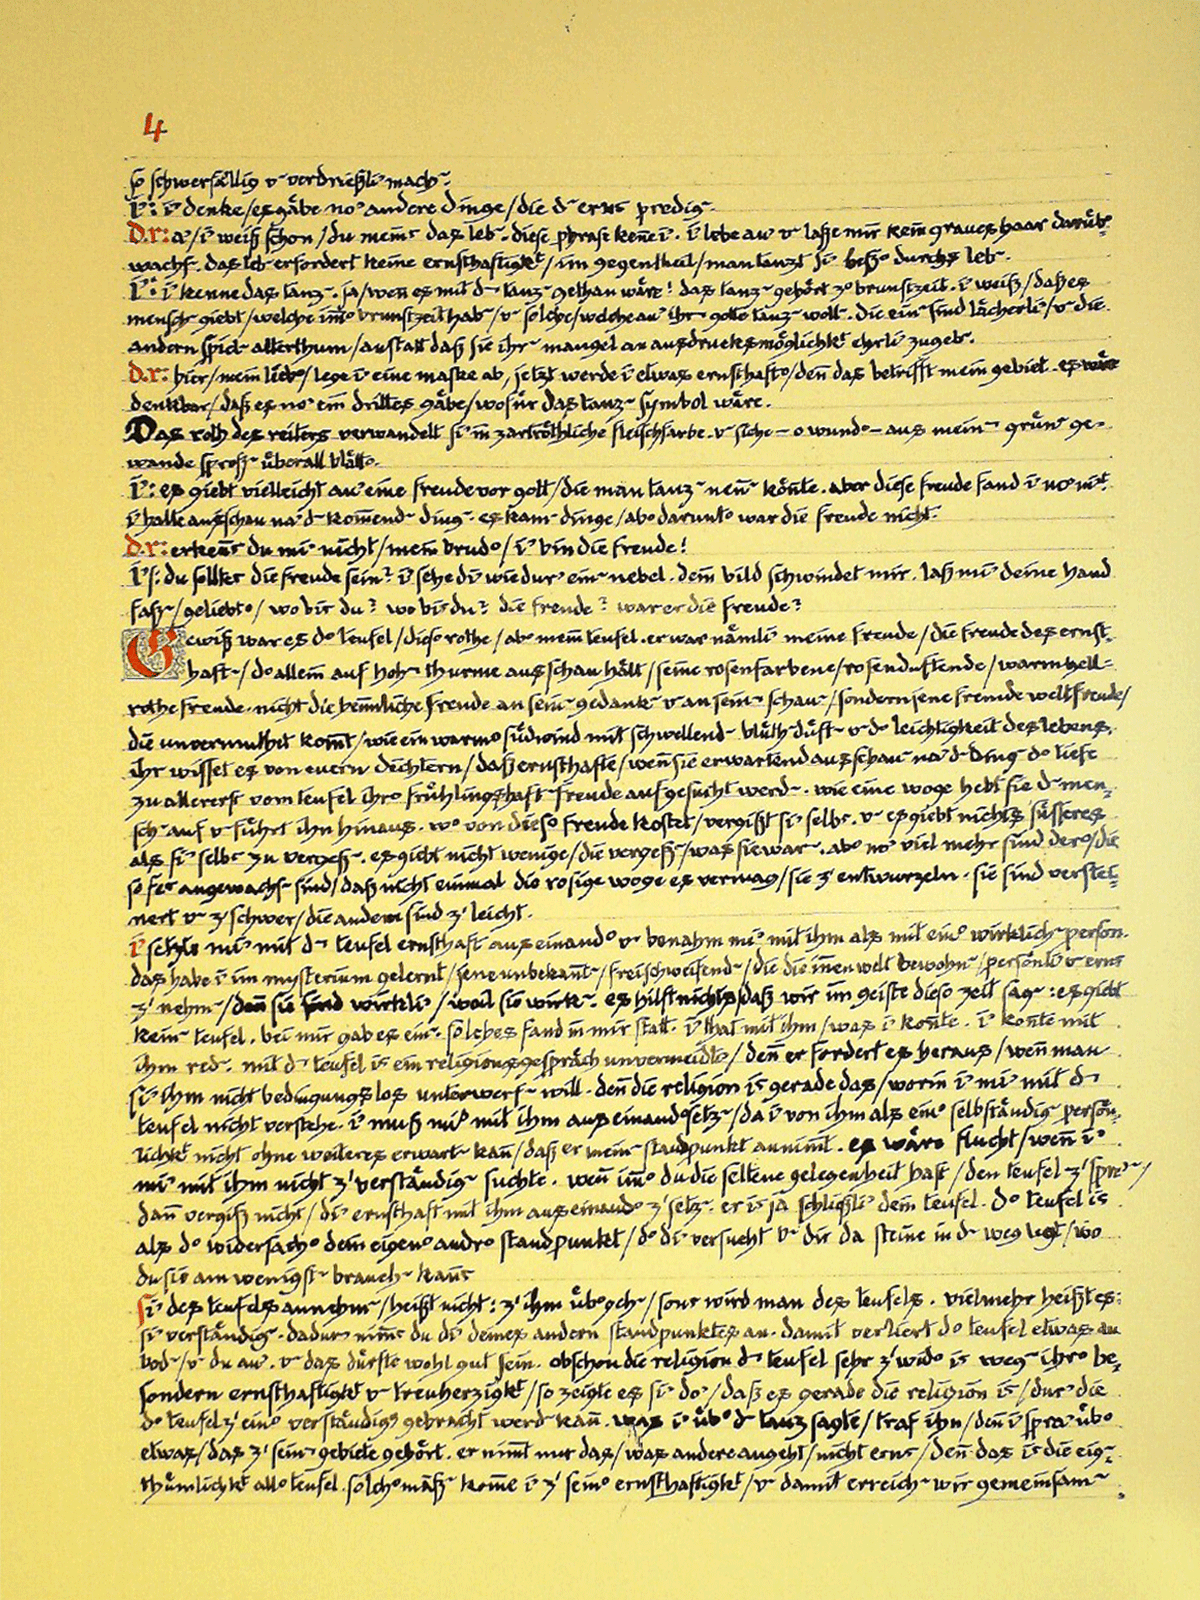 4
so schwerfällig v̄ verdrießlī mach~.
ī: ī denke/es gäbe no' andere dinge/die d~ erns predig~.
d.r: a'/ī weiß schon/du meins das leb~. diese phrase kenne ī. ī lebe au' v̄ lasse mir kein graues haar darübᵒ
wachs~. das leb~ erfordert keine ernsthaftigkt/im gegentheil/man tanzt sī bessᵒ durchs leb~.
ī: ī kenne das tanz~. ja/wen̄ es mit d~ tanz~ gethan wäre! das tanz~ gehört zᵒ brunstzeit. ī weiß/daß es
mensch~ giebt/welche im̄ᵒ brunstzeit hab~/v̄ solche/welche au' ihr~ götte tanz~ woll~. die ein~ sind lächerlī/v̄ die
andern spiel~ alterthum/anstatt daß sie ihr~ mangel an ausdrucksmöglichkt ehrlī zugeb~.
d.r: hier/mein liebᵒ/lege ī eine maske ab, jetzt werde ī etwas ernsthaftᵒ/den̄ das betrifft mein gebiet. es wäre
denkbar/daß es no' ein drittes gäbe/wofür das tanz~ symbol wäre.
Das roth des reiters verwandelt sī in zartröthliche fleischfarbe. v̄ siehe – o wundᵒ – aus mein~ grün~ ge-
wande spross~ überall blättᵒ.
ī: es giebt vielleicht au' eine freude vor gott/die man tanz~ nen̄~ kön̄te. aber diese freude fand ī no' nit.
ī halte ausschau na' d~ kom̄end~ ding~. es kam~ dinge/abᵒ daruntᵒ war die freude nicht.
d.r: erken̄s du mī nicht/mein brudᵒ/ī bin die freude!
ī: du solltes die freude sein? ī sehe dī wie dur' ein~ nebel. dein bild schwindet mir. laß mī deine hand
fass~/geliebtᵒ/wo bis du? wo bis du? die freude? war er die freude?
Gewiß war es dᵒ teufel/diesᵒ rothe/abᵒ mein teufel. er war nämlī meine freude/die freude des ernst-
haft~/dᵒ allein auf hoh~ thurme ausschau hält/seine rosenfarbene/rosenduftende/warmhell-
rothe freude. nicht die heimliche freude an sein~ gedank~ v̄ an sein~ schau~/sondern jene fremde weltfreude/
die unvermuthet kom̄t/wie ein warmᵒ südwind mit schwellend~ blüth~düft~ v̄ dᵒ leichtigkeit des lebens.
ihr wisset es von euern dichtern/daß ernsthafte/wen̄ sie erwartend ausschau~ na' d~ ding~ dᵒ tiefe
zu allererst vom teufel ihrᵒ frühlingshaft~ freude aufgesucht werd~. wie eine woge hebt sie d~ men-
sch~ auf v̄ führt ihn hinaus. wᵒ von diesᵒ freude kostet/vergißt sī selbs. v̄ es giebt nichts süsseres
als sī selbs zu vergess~. es giebt nicht wenige/die vergess~/was sie war~. abᵒ no' viel mehr sind derᵒ/die
so fes angewachs~ sind/daß nicht einmal die rosige woge es vermag/sie z' entwurzeln. sie sind verstei-
nert v̄ z' schwer/die andern sind z' leicht.
ī setzte mī mit d~ teufel ernsthaft auseinandᵒ v̄ benahm mī mit ihm als mit einᵒ wirklich~ person.
das habe ī im mysterium gelernt/jene unbekan̄t~/freischweifend~/die die in̄enwelt bewohn~/persönlī v̄ erns
z' nehm~/den̄ sie sind wirklī/weil sie wirk~. es hilft nichts/daß wir im geiste diesᵒ zeit sag~: es giebt
kein~ teufel. bei mir gab es ein~. solches fand in mir statt. ī that mit ihm/was ī kon̄te. ī kon̄te mit
ihm red~. mit d~ teufel is ein religionsgespräch unvermeidlī/den̄ er fordert es heraus/wen̄ man
sī ihm nicht bedingungslos unterwerf~ will. den̄ die religion is gerade das/worin ī mī mit d~
teufel nicht verstehe. ī muß mī mit ihm auseinandᵒsetz~/da ī von ihm als einᵒ selbständig~ persön-
lichkt nicht ohne weiteres erwart~ kan̄/daß er mein~ standpunkt annim̄t. es wäre flucht/wen̄ ī
mī mit ihm nicht z' verständig~ suchte. wen̄ im̄ᵒ du die seltene gelegenheit hast/den teufel z' spre'~/
dan̄ vergiß nicht/dī ernsthaft mit ihm auseinandᵒ z' setz~. er is ja schließlī dein teufel. dᵒ teufel is
als dᵒ widersachᵒ dein eigenᵒ andrᵒ standpunkt/dᵒ dī versucht v̄ dir da steine in d~ weg legt/wo
du sie am wenigst~ brauch~ kans
sī des teufels annehm~/heißt nicht: z' ihm übᵒgeh~/sons wird man des teufels. vielmehr heißt es:
sī verständig~. dadur' nim̄s du dī deines andern standpunktes an. damit verliert dᵒ teufel etwas an
bod~/v̄ du au'. v̄ das dürfte wohl gut sein. obschon die religion d~ teufel sehr z'widᵒ is weg~ ihrᵒ be-
sondern ernsthaftigkt v̄ treuherzigkt/so zeigte es sī do'/daß es gerade die religion is/dur' die
dᵒ teufel z' einᵒ verständigg gebracht werd~ kan̄. was ī übᵒ d~ tanz sagte/traf ihn/den̄ ī spra' übᵒ
etwas/das z' sein~ gebiete gehört. er nim̄t nur das/was andere angeht/nicht erns/den̄ das is die eig-
thümlichkt allᵒ teufel. solchᵒmäß~ kom̄e ī z' seinᵒ ernsthaftigkt/v̄ damit erreich~ wir gemeinsam~